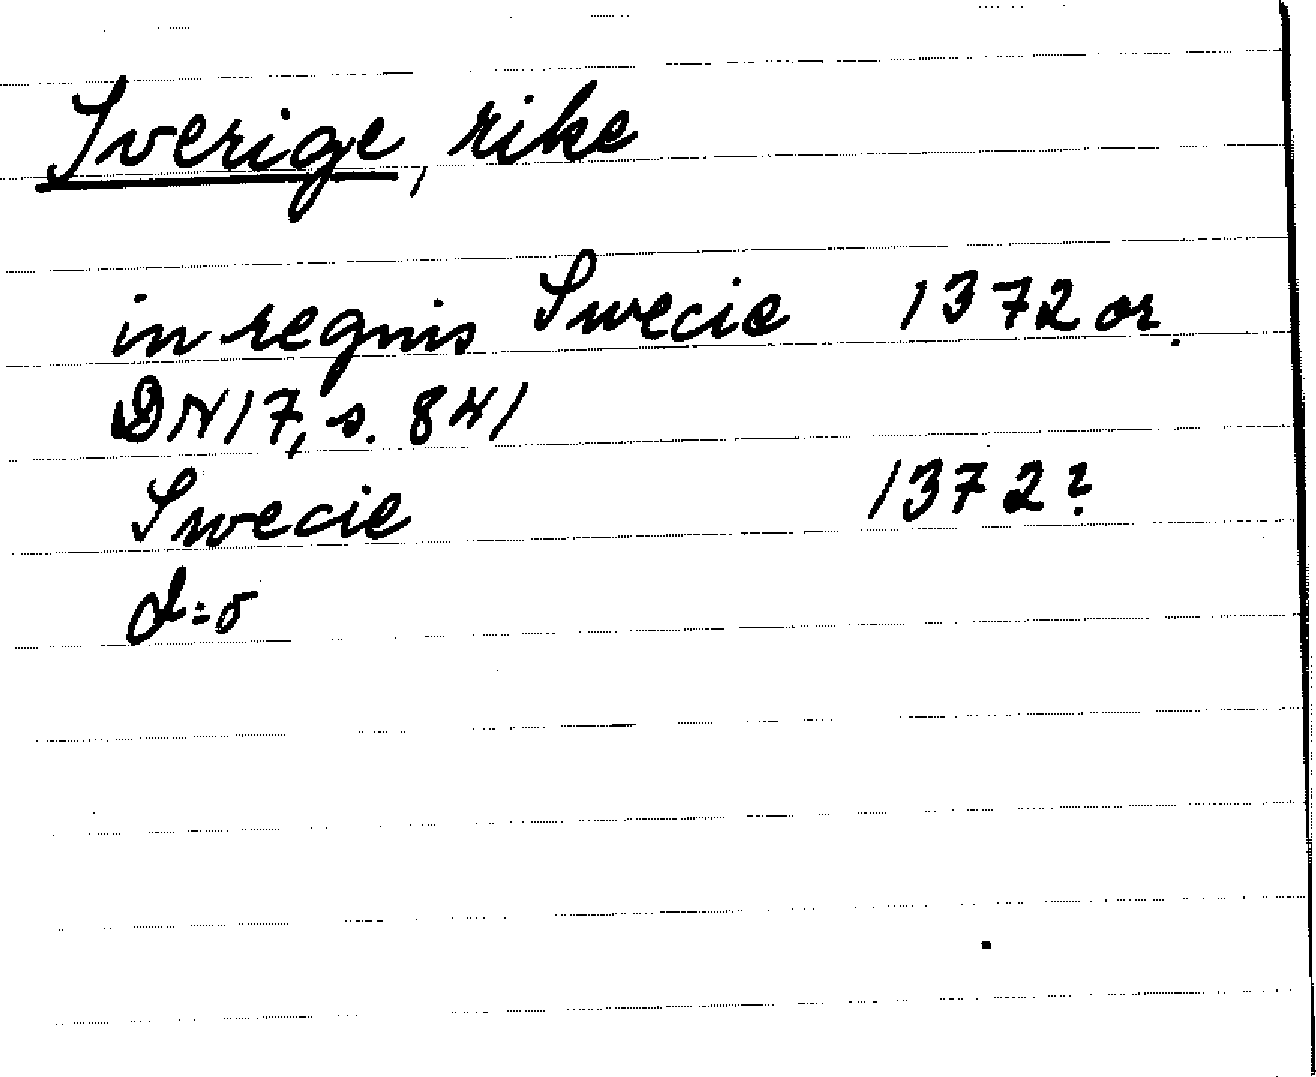 Sverige, rike
in regnis Swecie 1372 or.
DN 17, s. 841
Swecie 1372?
d:o